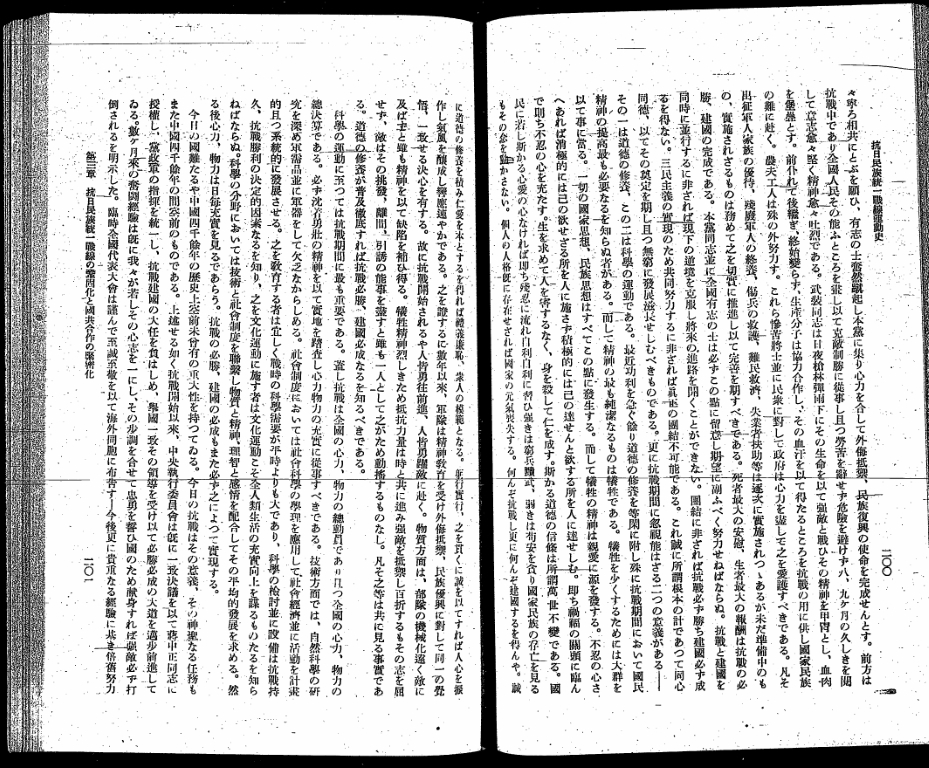 抗日民族統一戰線運動史
二〇〇
々寧ろ相共にとぶを願ひ、有志の士奮然蹶起し本黨に集り心力を合して外侮抵禦、民族復興の使命を完成せんとす。前方は
抗戰中であり全國人民と其の能ふところを盡し以て克敵制勝に從事し且つ勞苦を辭せず危險を避けず八、九ヶ月の久しきを閱
して意志愈々堅く精神愈々壯烈である。武裝同志は日夜槍林彈雨下にその生命を以て强敵と戰ひその精神を甲冑とし、血肉
を堡壘とす。前仆れて後繼ぎ、終始變らず、生產分子は協力合作し、その血汗を以て得たるところを抗戰の用に供し國家民族
の難に赴く。農夫工人は殊の外努力す。これら慘苦將士並に民衆に對して政府は心力を盡して之を愛護すべきである。凡そ
出征軍人家族の優待、殘廢軍人の終養、傷兵の救護、難民救濟、失業者扶助等は逐次に實施されつゝあるが未だ準備中のも
の、實施されざるものは務めて之を切實に推進し以て完善を期すべきである。死者最大の安慰、生者最大の報酬は抗戰の必
勝、建國の完成である。本黨同志並に全國有志の士は必ずこの點に留意し期望に副ふべく努力せねばならぬ。抗戰と建國を
同時に並行するに非ざれば現下の道境を克服し將來の進路を開くことができない。團結に非ざれば抗戰必ず勝ち建國必ず成
るを得ない。三民主義の實現のため共同努力するに非ざれば眞正の團結不可能である。これ誠に所謂根本の計であつて同心
同德、以てその奠定を期し且つ無窮に發展滋長せしむべきものである。更に抗戰期間に忽視能はざる二つの意義がある――
その一は道德の修養、この二は科學の運動である。最近功利を急ぐ餘り道德の修養を等閑に附し殊に抗戰期間において國民
精神の提高最も必要なるを知らぬ者がある。而して精神の最も純潔なるものは犧牲である。犧牲を少くするためには大群を
以て事に當る。一切の國家思想、民族思想はすべてこの點に發生する。而して犧牲の精神は親愛に源を發する。不忍の心さ
へあれば消極的には己の欲せざる所を人に施さず積極的には己の達せんと欲する所を人に達せしむ。卽ち禍福の關頭に臨ん
で則ち不忍の心を充たす。生を求めて人を害するなく、身を殺して仁を成す。斯かる道德の信條は所謂萬世不變である。國
民に若し斯かる心愛の心なければ卽ち殘忍に流れ自利自利に習ひ强きは窮兵黷武、弱きは苟安を貪り國家民族の存亡を見る
もその念を動かさない。個人の人格旣に存在せざれば國家の元氣喪失する。何んぞ抗戰し更に何んぞ建國するを得んや。誠
に道德の修養を積み仁愛を本とするを得れば禮義廉恥、衆人の模範となる。躬行實行、之を貫くに誠を以てすれば人心を振
作し氣風を釀成し響應速やかである。之を證するに數年以來、軍隊は精神敎育を受け外侮抵禦、民族復興に對して同一の覺
悟、一致せる決心を有する。故に抗戰開始さるゝや人皆勇往前進、人皆勇躍敵に赴く。物質方面は、部隊の機械化遠く敵に
及ばずと雖も精神を以て缺陷を補ひ得る。犧牲精神烈しきため抵抗力量は時と共に進み强敵を抵禦し百折するもその志を屈
せず、敵はその挑發、離間、引誘の能事を盡すと雖も一人としてこがため動搖するものなし。凡そ之等は共に見る事實であ
る。道德の修養が普及徹底すれば抗戰必勝、建國必成なるを知るべきである。
科學の運動に至つては抗戰期間に最も重要である。蓋し抗戰は全國の心力、物力の總動員であり且つ全國の心力、物力の
總決算である。必ず沈着勇壯の精神を以て實地を踏査し心力物力の充實に從事すべきである。技術方面では、自然科學の硏
究を深め軍需品並に軍器をして欠乏なからしめる。社會制度においては社會科學の學理を應用して社會經濟並に活動を計畫
的且つ系統的に發展させる。之を敎育する者は宜しく戰時の科學需要が平時よりも大であり、科學の檢討並に設備は抗戰持
久、抗戰勝利の決定的因素なるを知り、之を文化運動に施す者は文化運動ことを全人類生活の充實向上を謀るものたるを知ら
ねばならぬ。科學の分野においては技術と社會制度を聯繫し物質と精神、理智と感情を配合してその平均的發展を求める。然
る後心力、物力は日每充實を見るであらう。抗戰の必勝、建國の必成もまた必ず之によつて實現する。
今日の國難たるや中國四千餘年の歷史上空前未曾有の重大性を持つてゐる。今日の抗戰はその意義、その神聖なる任務も
また中國四千餘年の間空前のものである。上述せる如く抗戰開始以來、中央執行委員會は旣に一致決議を以て蔣中正同志に
授權し、黨政軍の指揮を統一し、抗戰建國の大任を負はしめ、擧國一致その領導を受け以て必勝必成の大道を邁步前進して
ゐる。數ヶ月來の奮鬪經驗は旣に我々が若しその心志を一にし、その步調を合せて忠勇を奮ひ國のため獻身すれば强敵必ず打
倒されるを明示した。臨時全國代表大會は謹んで至誠至敬を以て海外同胞に布告す――今後更に貴重なる經驗に基き倍舊努力
第三章　抗日民族統一戰線の鞏固化と國共合作の緊密化
二〇一